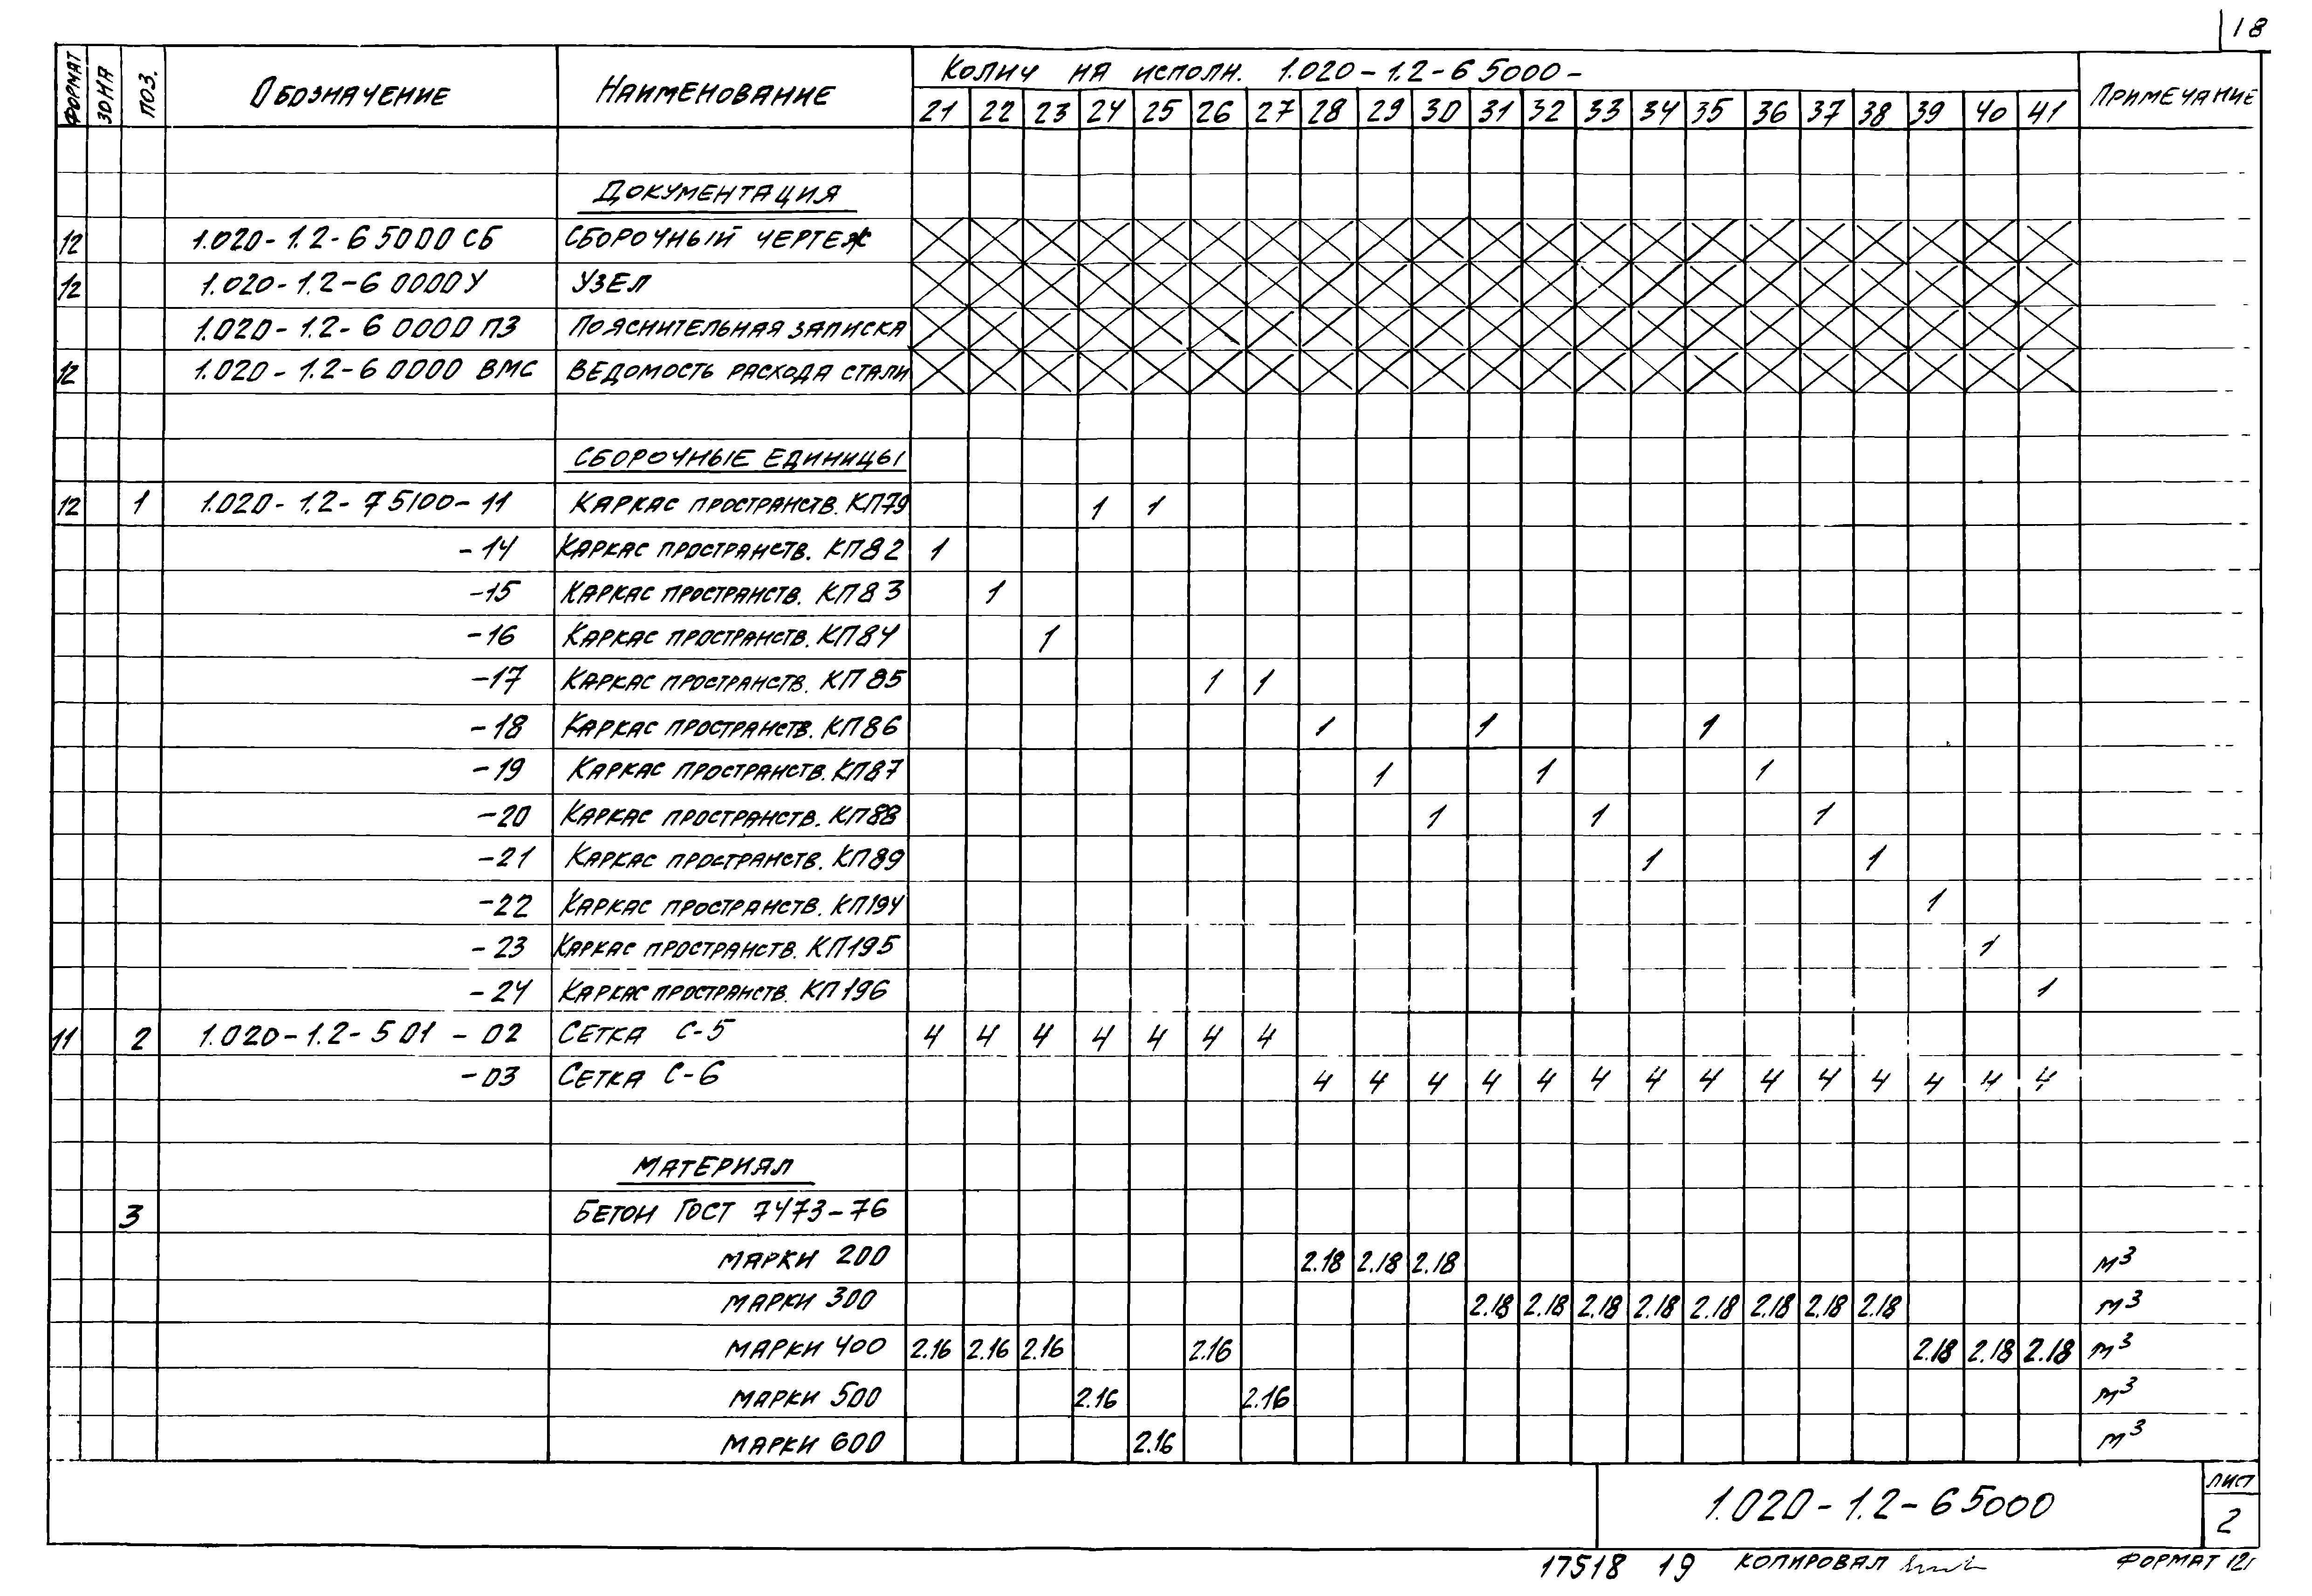 18
ФОРМАТ ЗОНА ПОЗ. ОБОЗНАЧЕНИЕ НАИМЕНОВАНИЕ КОЛИЧ НА ИСПОЛН. 1.020-1.2-6 5000- ПРИМЕЧАНИЕ
21 22 23 24 25 26 27 28 29 30 31 32 33 34 35 36 37 38 39 40 41
ДОКУМЕНТАЦИЯ
12 1.020-1.2-6 5000 СБ СБОРОЧНЫЙ ЧЕРТЕЖ
12 1.020-1.2-6 0000 У УЗЕЛ
1.020-1.2-6 0000 ПЗ ПОЯСНИТЕЛЬНАЯ ЗАПИСКА
12 1.020-1.2-6 0000 ВМС ВЕДОМОСТЬ РАСХОДА СТАЛИ
СБОРОЧНЫЕ ЕДИНИЦЫ
12 1 1.020-1.2-7 5100-11 КАРКАС ПРОСТРАНСТВ. КП79 1 1
-14 КАРКАС ПРОСТРАНСТВ. КП82 1
-15 КАРКАС ПРОСТРАНСТВ. КП83 1
-16 КАРКАС ПРОСТРАНСТВ. КП84 1
-17 КАРКАС ПРОСТРАНСТВ. КП85 1 1
-18 КАРКАС ПРОСТРАНСТВ. КП86 1 1 1
-19 КАРКАС ПРОСТРАНСТВ. КП87 1 1 1
-20 КАРКАС ПРОСТРАНСТВ. КП88 1 1 1
-21 КАРКАС ПРОСТРАНСТВ. КП89 1 1
-22 КАРКАС ПРОСТРАНСТВ. КП194 1
-23 КАРКАС ПРОСТРАНСТВ. КП195 1
-24 КАРКАС ПРОСТРАНСТВ. КП196 1
11 2 1.020-1.2-5 01 -02 СЕТКА С-5 4 4 4 4 4 4 4
-03 СЕТКА С-6 4 4 4 4 4 4 4 4 4 4 4 4 4 4
МАТЕРИАЛ
3 БЕТОН ГОСТ 7473-76
МАРКИ 200 2.18 2.18 2.18 м³
МАРКИ 300 2.18 2.18 2.18 2.18 2.18 2.18 2.18 2.18 м³
МАРКИ 400 2.16 2.16 2.16 2.16 2.18 2.18 2.18 м³
МАРКИ 500 2.16 2.16 м³
МАРКИ 600 2.16 м³
1.020-1.2-6 5000 ЛИСТ
2
17518 19 КОПИРОВАЛ ФОРМАТ 12г